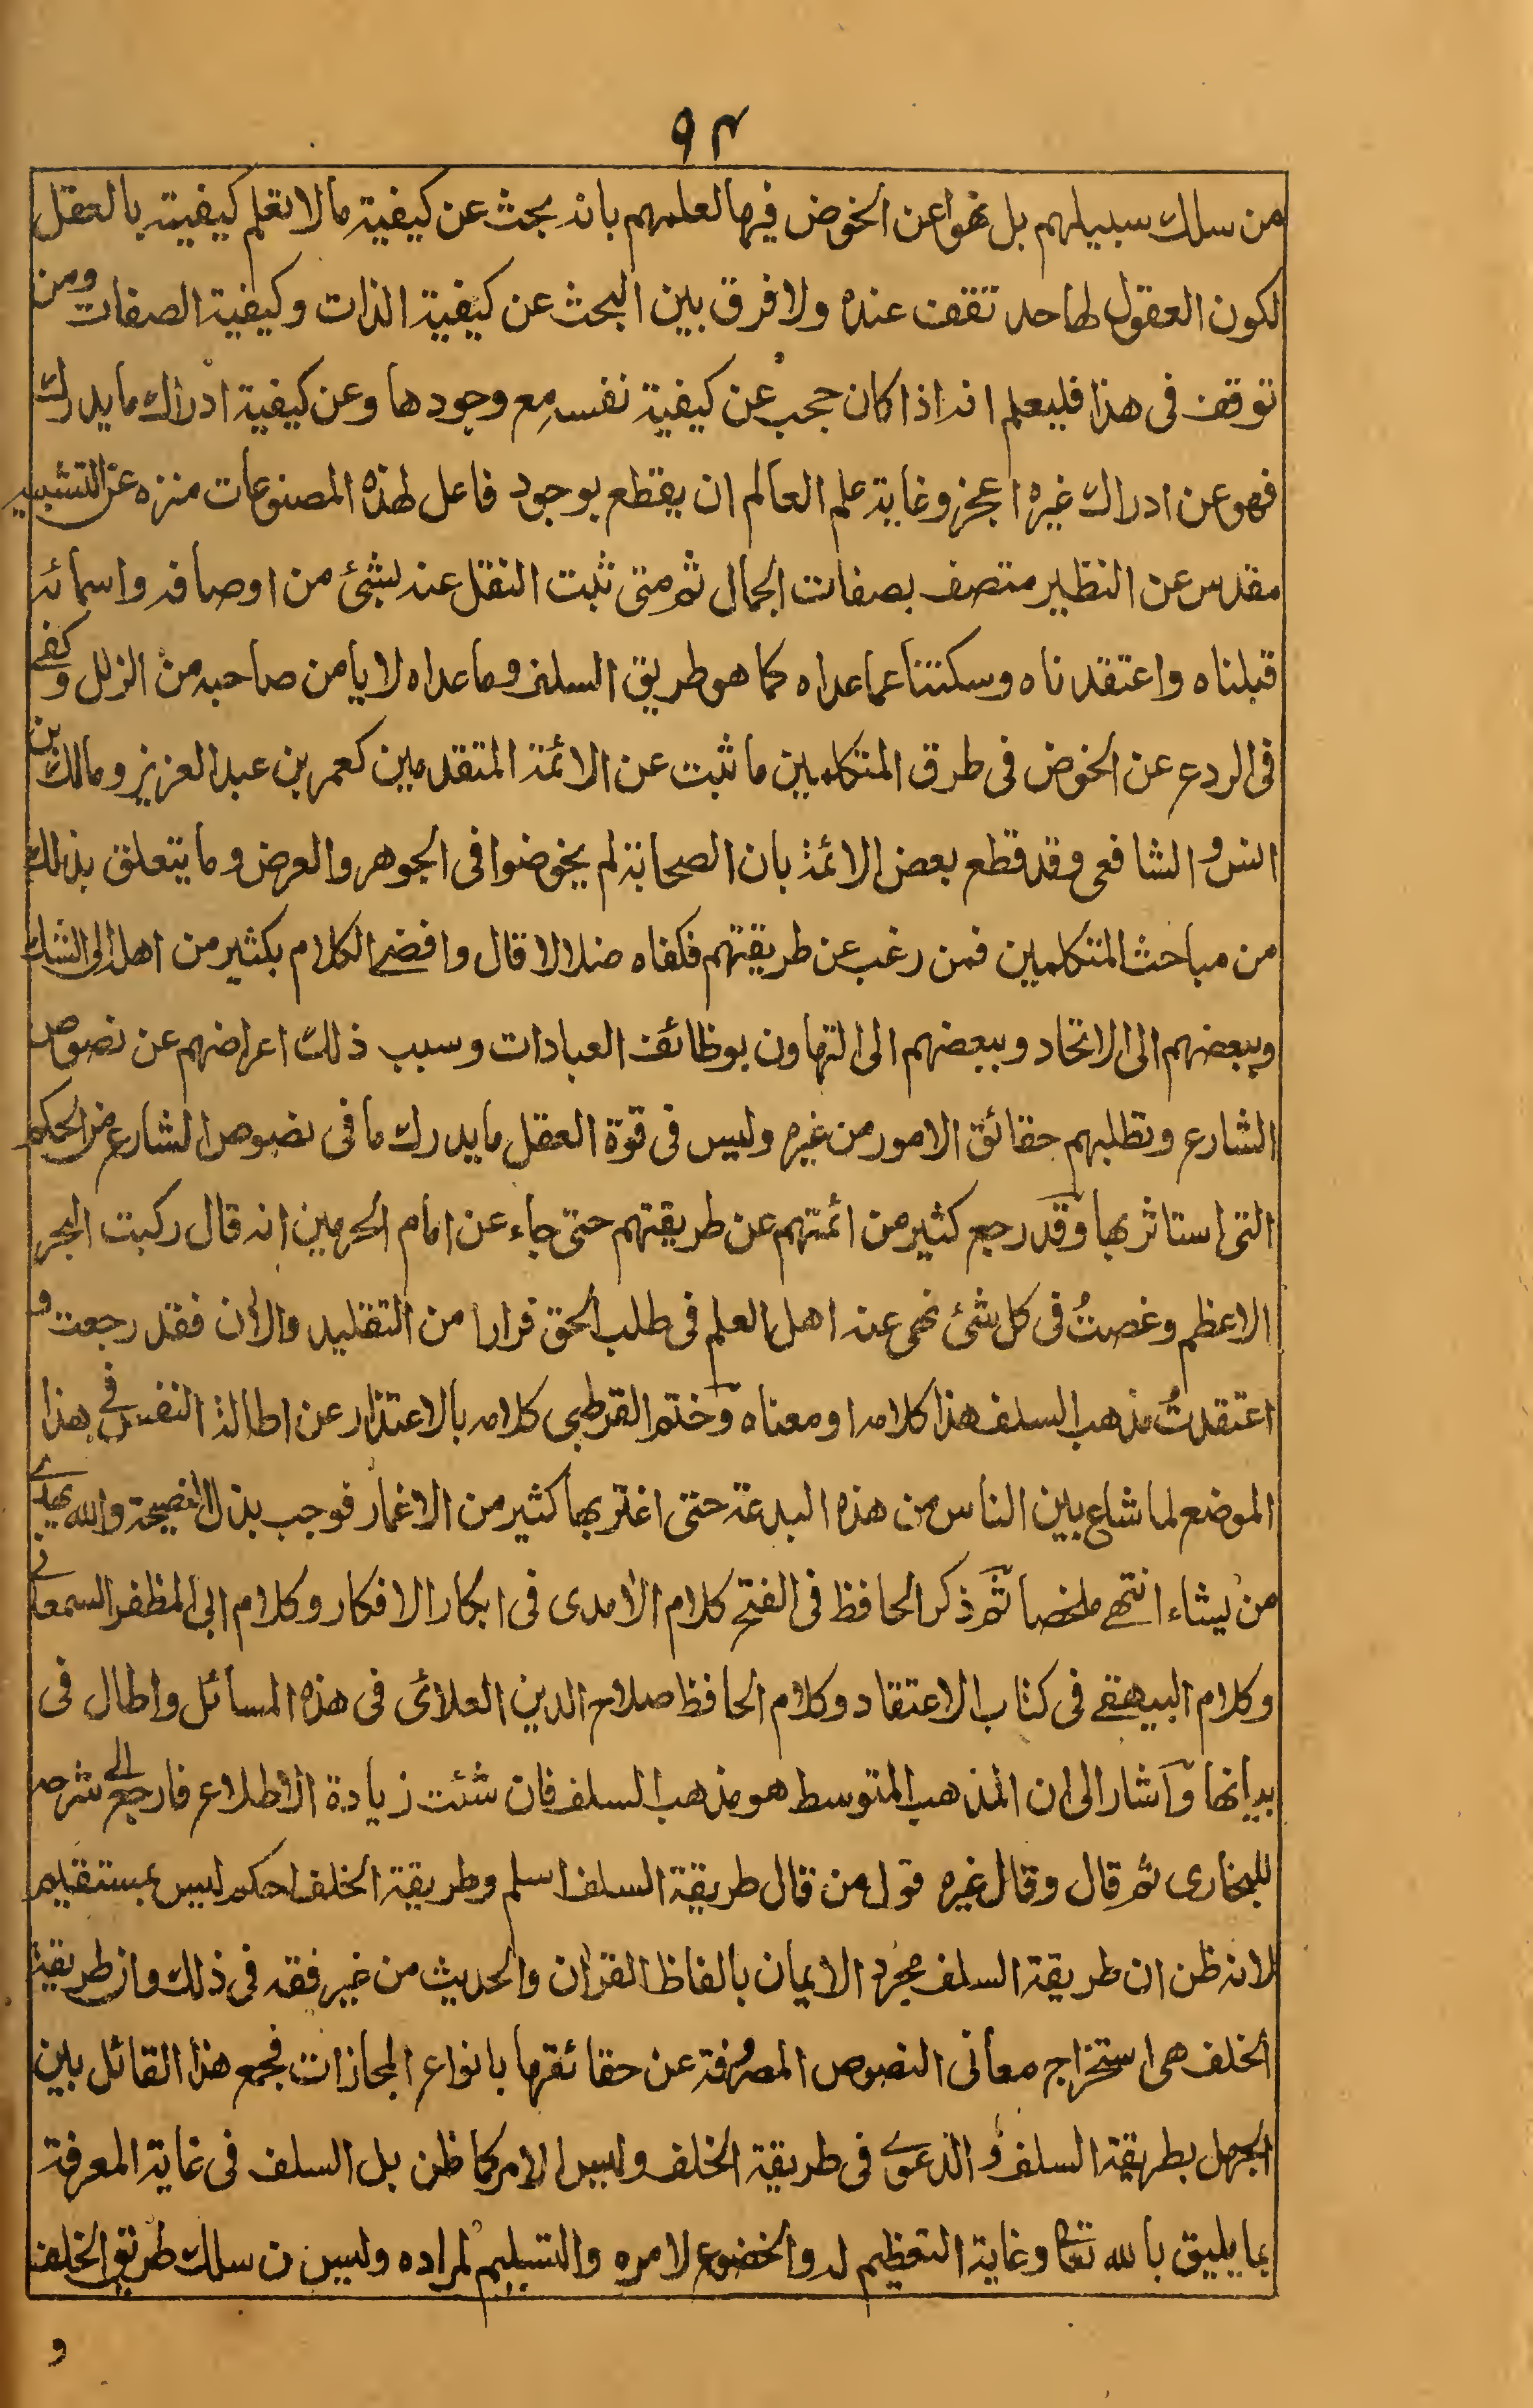 ٩٤
من سلك سبيلهم بل نهوا عن الخوض فيها لعلمهم بانه بحث عن كيفية ما لا تعلم كيفيته بالعقل
لكون العقول لها حد تقف عنده ولا فرق بين البحث عن كيفية الذات وكيفية الصفات ومن
توقف فى هذا فليعلم انه اذا كان حجب عن كيفية نفسه مع وجودها وعن كيفية ادراك ما يدرك
فهو عن ادراك غيره اعجز وغاية علم العالم ان يقطع بوجود فاعل لهذه المصنوعات منزه عن التشبيه
مقدس عن النظير متصف بصفات الجمال ثم متى ثبت النقل عنه بشئ من اوصافه واسمائه
قبلناه واعتقدناه وسكتنا عما عداه كما هو طريق السلف وما عداه لا يامن صاحبه من الزلل وكفے
فى الردع عن الخوض فى طرق المتكلمين ما ثبت عن الائمة المتقدمين كعمر بن عبد العزيز ومالك بن
انس والشافعى وقد قطع بعض الائمة بان الصحابة لم يخوضوا فى الجوهر والعرض وما يتعلق بذلك
من مباحث المتكلمين فمن رغب عن طريقتهم فكفاه ضلالا قال وافضے الكلام بكثير من اهله الى الشك
وببعضهم الى الاتحاد وببعضهم الى التهاون بوظائف العبادات وسبب ذلك اعراضهم عن نصوص
الشارع وتطلبهم حقائق الامور من غيره وليس فى قوة العقل ما يدرك ما فى نصوص الشارع من الحكم
التى استاثر بها وقد رجع كثير من ائمتهم عن طريقتهم حتى جاء عن امام الحرمين انه قال ركبت البحر
الاعظم وغصتُ فى كل شئ نهى عنه اهل العلم فى طلب الحق فرارا من التقليد والأن فقد رجعت و
اعتقدتُ مذهب السلف هذا كلامه او معناه وختم القرطبى كلامه بالاعتذار عن اطالة النفس فى هذا
الموضع لما شاع بين الناس من هذه البدعة حتى اغتر بها كثير من الاغمار فوجب بذل النصيحة والله يهدے
من يشاء انتهے ملخصا ثم ذكر الحافظ فى الفتح كلام الأمدى فى ابكار الافكار وكلام ابى المظفر السمعانے
وكلام البيهقے فى كتاب الاعتقاد وكلام الحافظ صلاح الدين العلائى فى هذه المسائل واطال فى
بيانها وآشار الى ان المذهب المتوسط هو مذهب السلف فان شئت زيادة الاطلاع فارجع الے شرحه
للبخارى ثم قال وقال غيره قول من قال طريقة السلف اسلم وطريقة الخلف احكم ليس بمستقيم
لانه ظن ان طريقة السلف مجرد الايمان بالفاظ القران والحديث من غير فقه فى ذلك وان طريقة
الخلف هى استخراج معانى النصوص المصروفة عن حقائقها بانواع المجازات فجمع هذا القائل بين
الجهل بطريقة السلف والدعوے فى طريقة الخلف وليس الامر كما ظن بل السلف فى غاية المعرفة
بما يليق بالله تعالى وغاية التعظيم له والخضوع لامره والتسليم لمراده وليس من سلك طريق الخلف
و